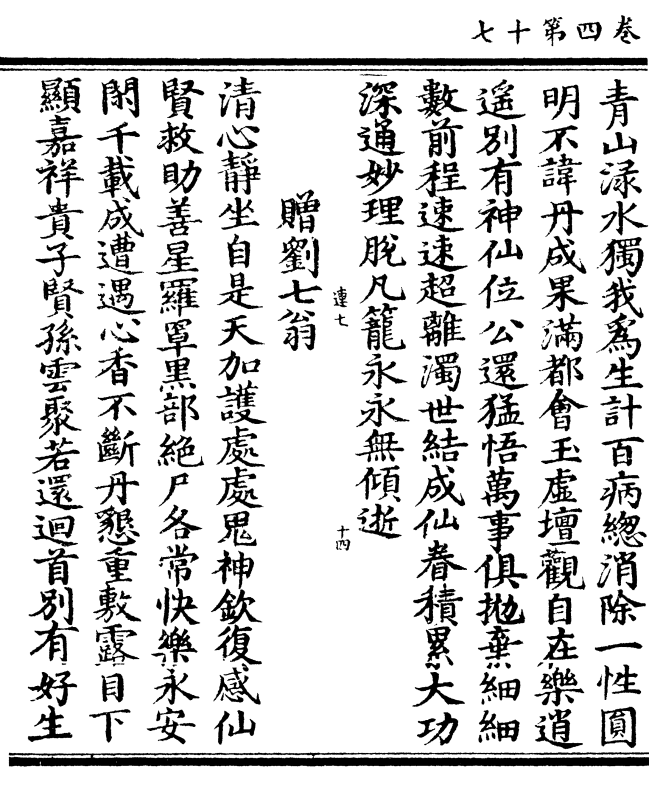 卷四第十七
青山渌水獨我爲生計百病緫消除一性圓
明不諱丹成果滿都會玉虛壇觀自在樂逍
遥別有神仙位公還猛悟萬事俱拋棄細細
數前程速速超離濁世結成仙眷積累大功
深通妙理脫凡籠永永無傾逝
連七
十四
贈劉七翁
清心靜坐自是天加護處處鬼神欽復感仙
賢救助善星羅罩黑部絶尸各常快樂永安
閑千載成遭遇心香不斷丹懇重敷露目下
顯嘉祥貴子賢孫雲聚若還迴首別有好生